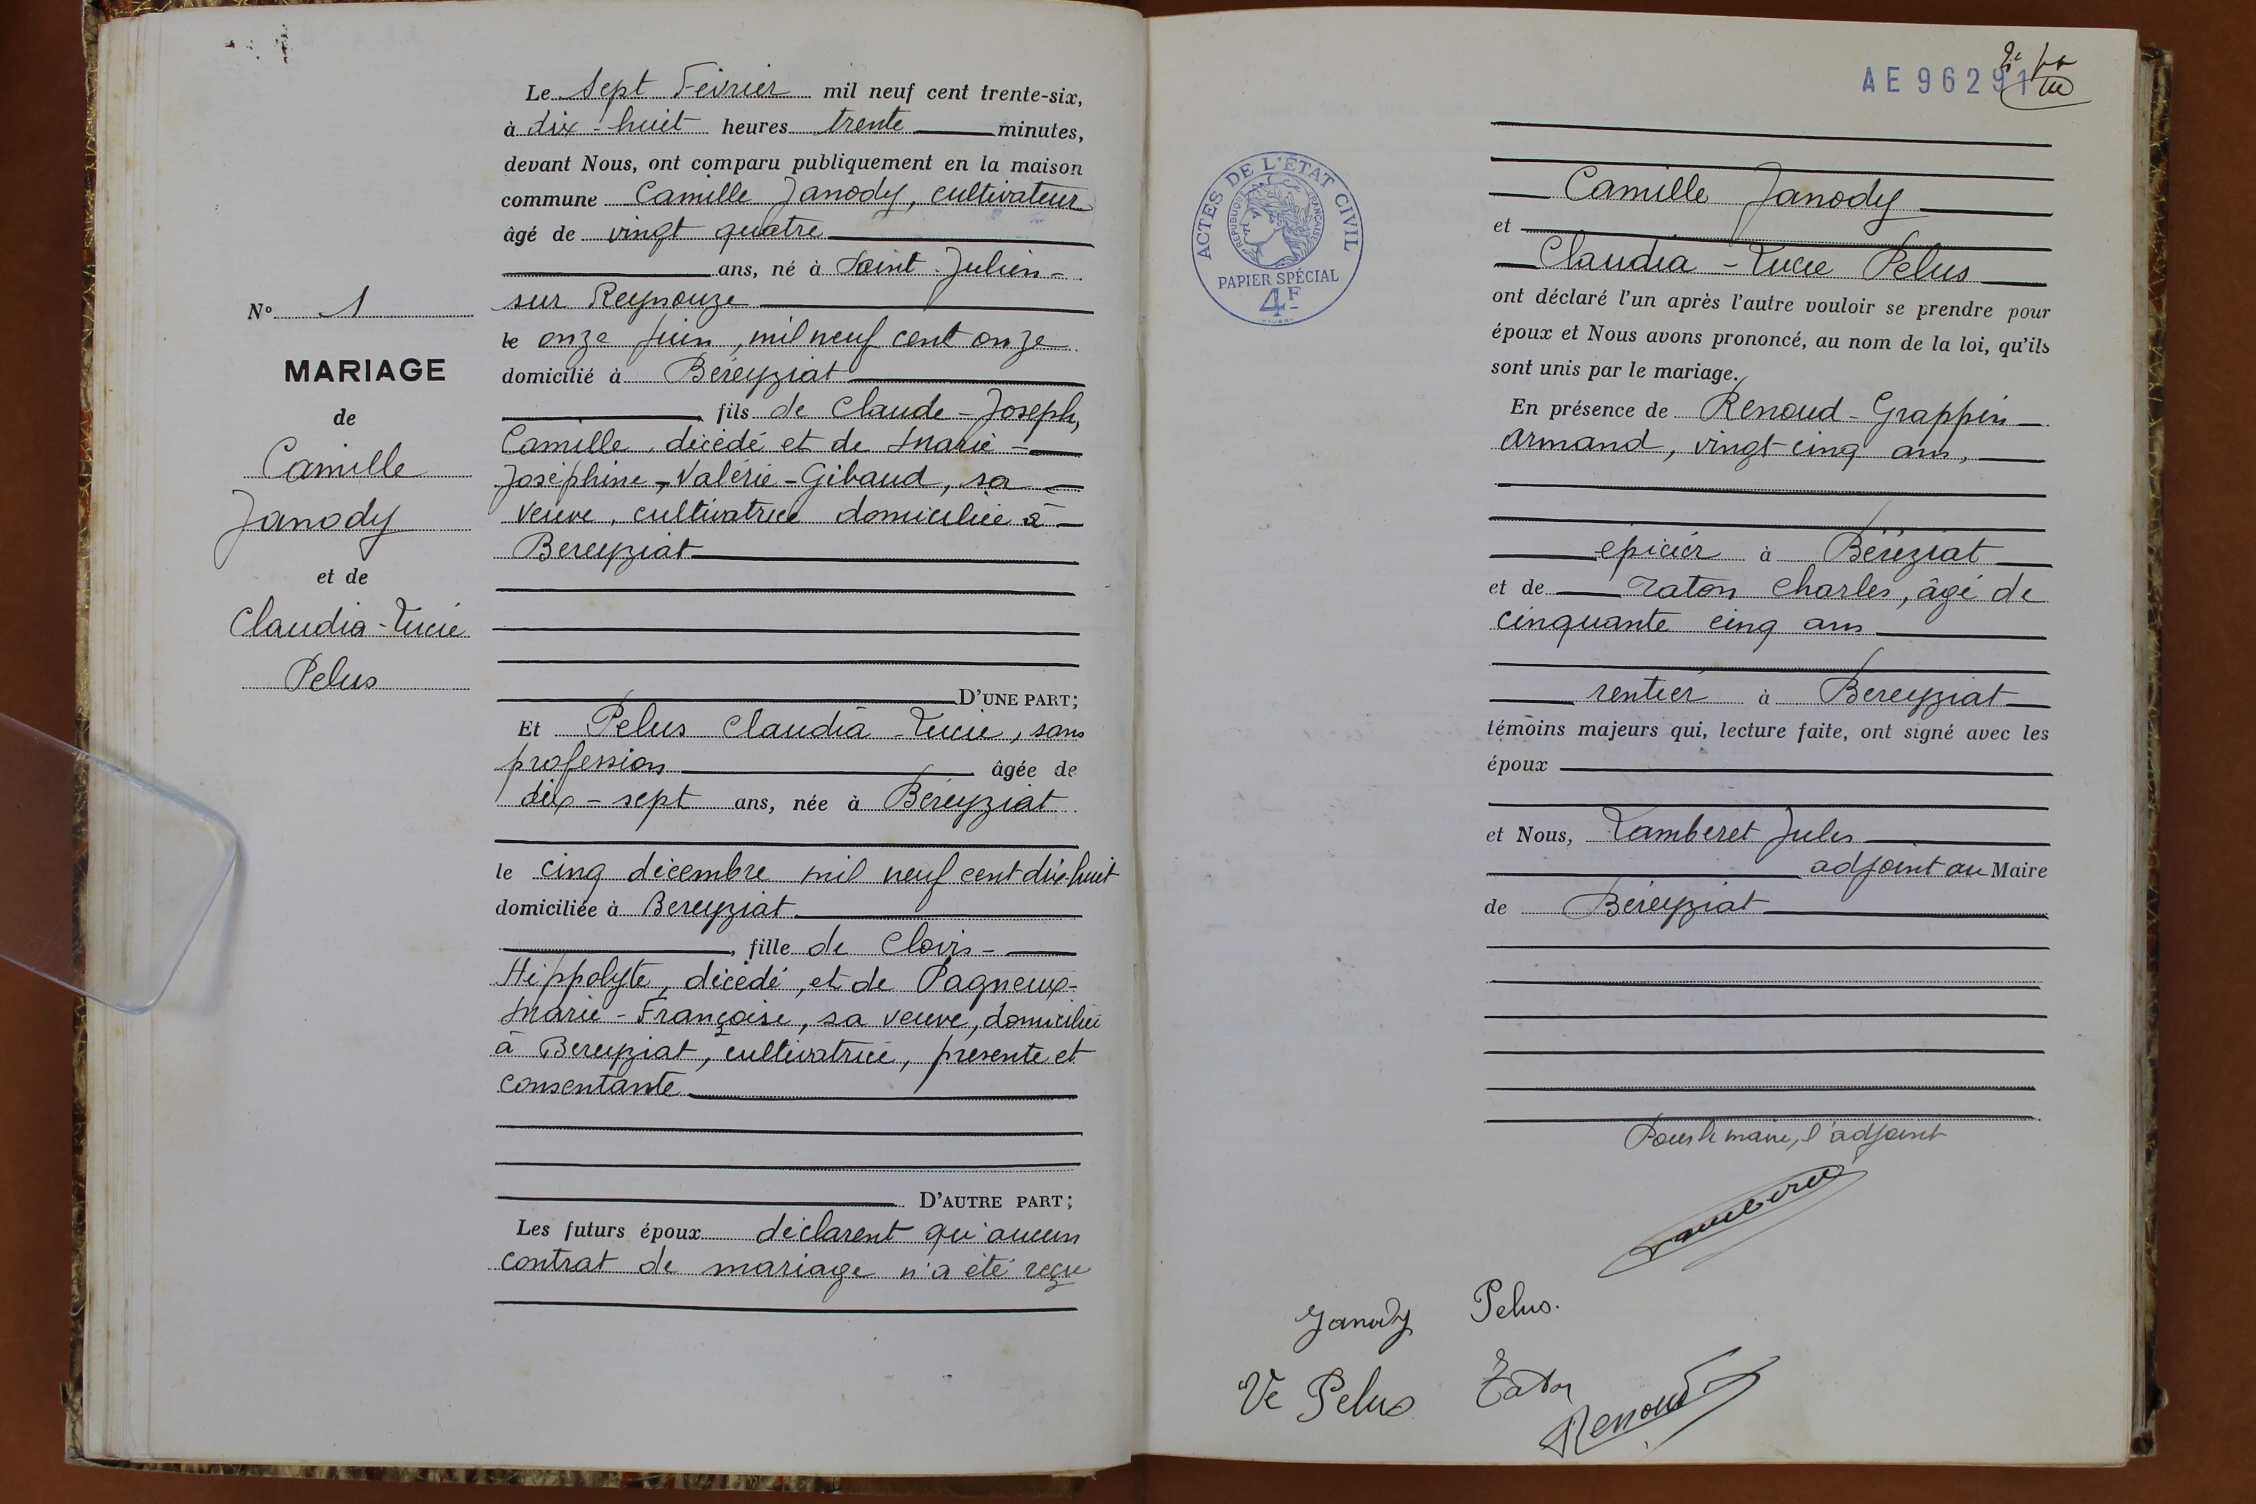 Le Sept Février mil neuf cent trente-six,
à dix-huit heures trente minutes,
devant Nous, ont comparu publiquement en la maison
commune Camille Janody, cultivateur
âgé de vingt quatre
ans, né à Saint-Julien-
sur Reyssouze
le onze juin, mil neuf cent onze
domicilié à Béréyziat
fils de Claude-Joseph,
Camille, décédé et de Marie-
Joséphine-Valérie-Gibaud, sa
veuve, cultivatrice domiciliée à
Bereyziat
D'UNE PART;
Et Pelus Claudia-Lucie, sans
profession âgée de
dix-sept ans, née à Béréyziat
le cinq décembre mil neuf cent dix-huit
domiciliée à Bereyziat
fille de Clovis-
Hippolyte, décédé, et de Pagneux-
Marie-Françoise, sa veuve, domiciliée
à Bereyziat, cultivatrice, présente et
consentante
D'AUTRE PART;
Les futurs époux déclarent qu'aucun
contrat de mariage n'a été reçu
N° 1
MARIAGE
de
Camille
Janody
et de
Claudia-Lucie
Pelus
AE 96291
ACTES DE L'ÉTAT CIVIL
RÉPUBLIQUE FRANÇAISE
PAPIER SPÉCIAL
4F
Camille Janody
et
Claudia-Lucie Pelus
ont déclaré l'un après l'autre vouloir se prendre pour
époux et Nous avons prononcé, au nom de la loi, qu'ils
sont unis par le mariage.
En présence de Renoud-Grappin
Armand, vingt-cinq ans,
épicier à Béréziat
et de Taton Charles, âgé de
cinquante cinq ans
rentier à Bereyziat
témoins majeurs qui, lecture faite, ont signé avec les
époux
et Nous, Lamberet Jules
adjoint au Maire
de Béréyziat
Pour le maire, l'adjoint
Lamberet
Janody Pelus.
Ve Pelus Taton
Renoud